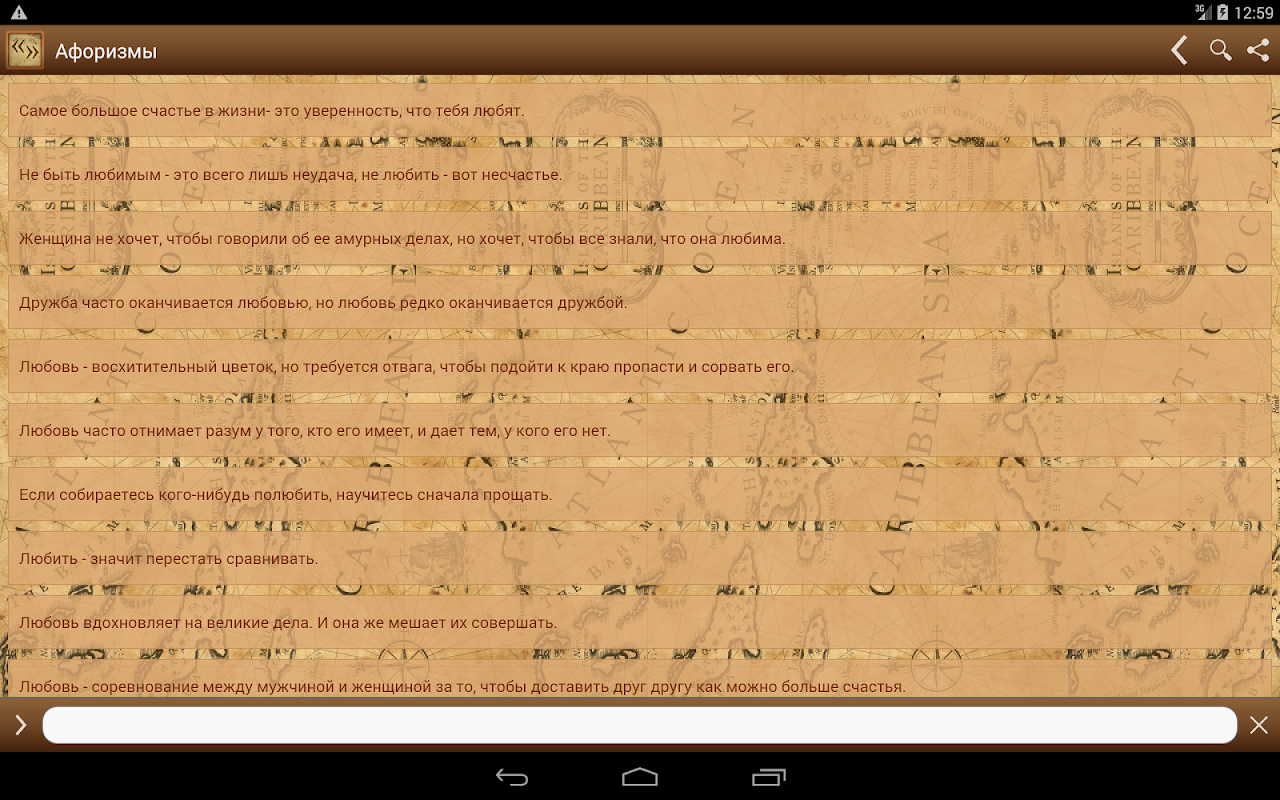 3G 12:59
Афоризмы
Самое большое счастье в жизни- это уверенность, что тебя любят.
Не быть любимым - это всего лишь неудача, не любить - вот несчастье.
Женщина не хочет, чтобы говорили об ее амурных делах, но хочет, чтобы все знали, что она любима.
Дружба часто оканчивается любовью, но любовь редко оканчивается дружбой.
Любовь - восхитительный цветок, но требуется отвага, чтобы подойти к краю пропасти и сорвать его.
Любовь часто отнимает разум у того, кто его имеет, и дает тем, у кого его нет.
Если собираетесь кого-нибудь полюбить, научитесь сначала прощать.
Любить - значит перестать сравнивать.
Любовь вдохновляет на великие дела. И она же мешает их совершать.
Любовь - соревнование между мужчиной и женщиной за то, чтобы доставить друг другу как можно больше счастья.
ISLANDS OF THE
CARIBBEAN
ATLANTIC OCEAN
CARIBBEAN SEA
THE BAHAMAS